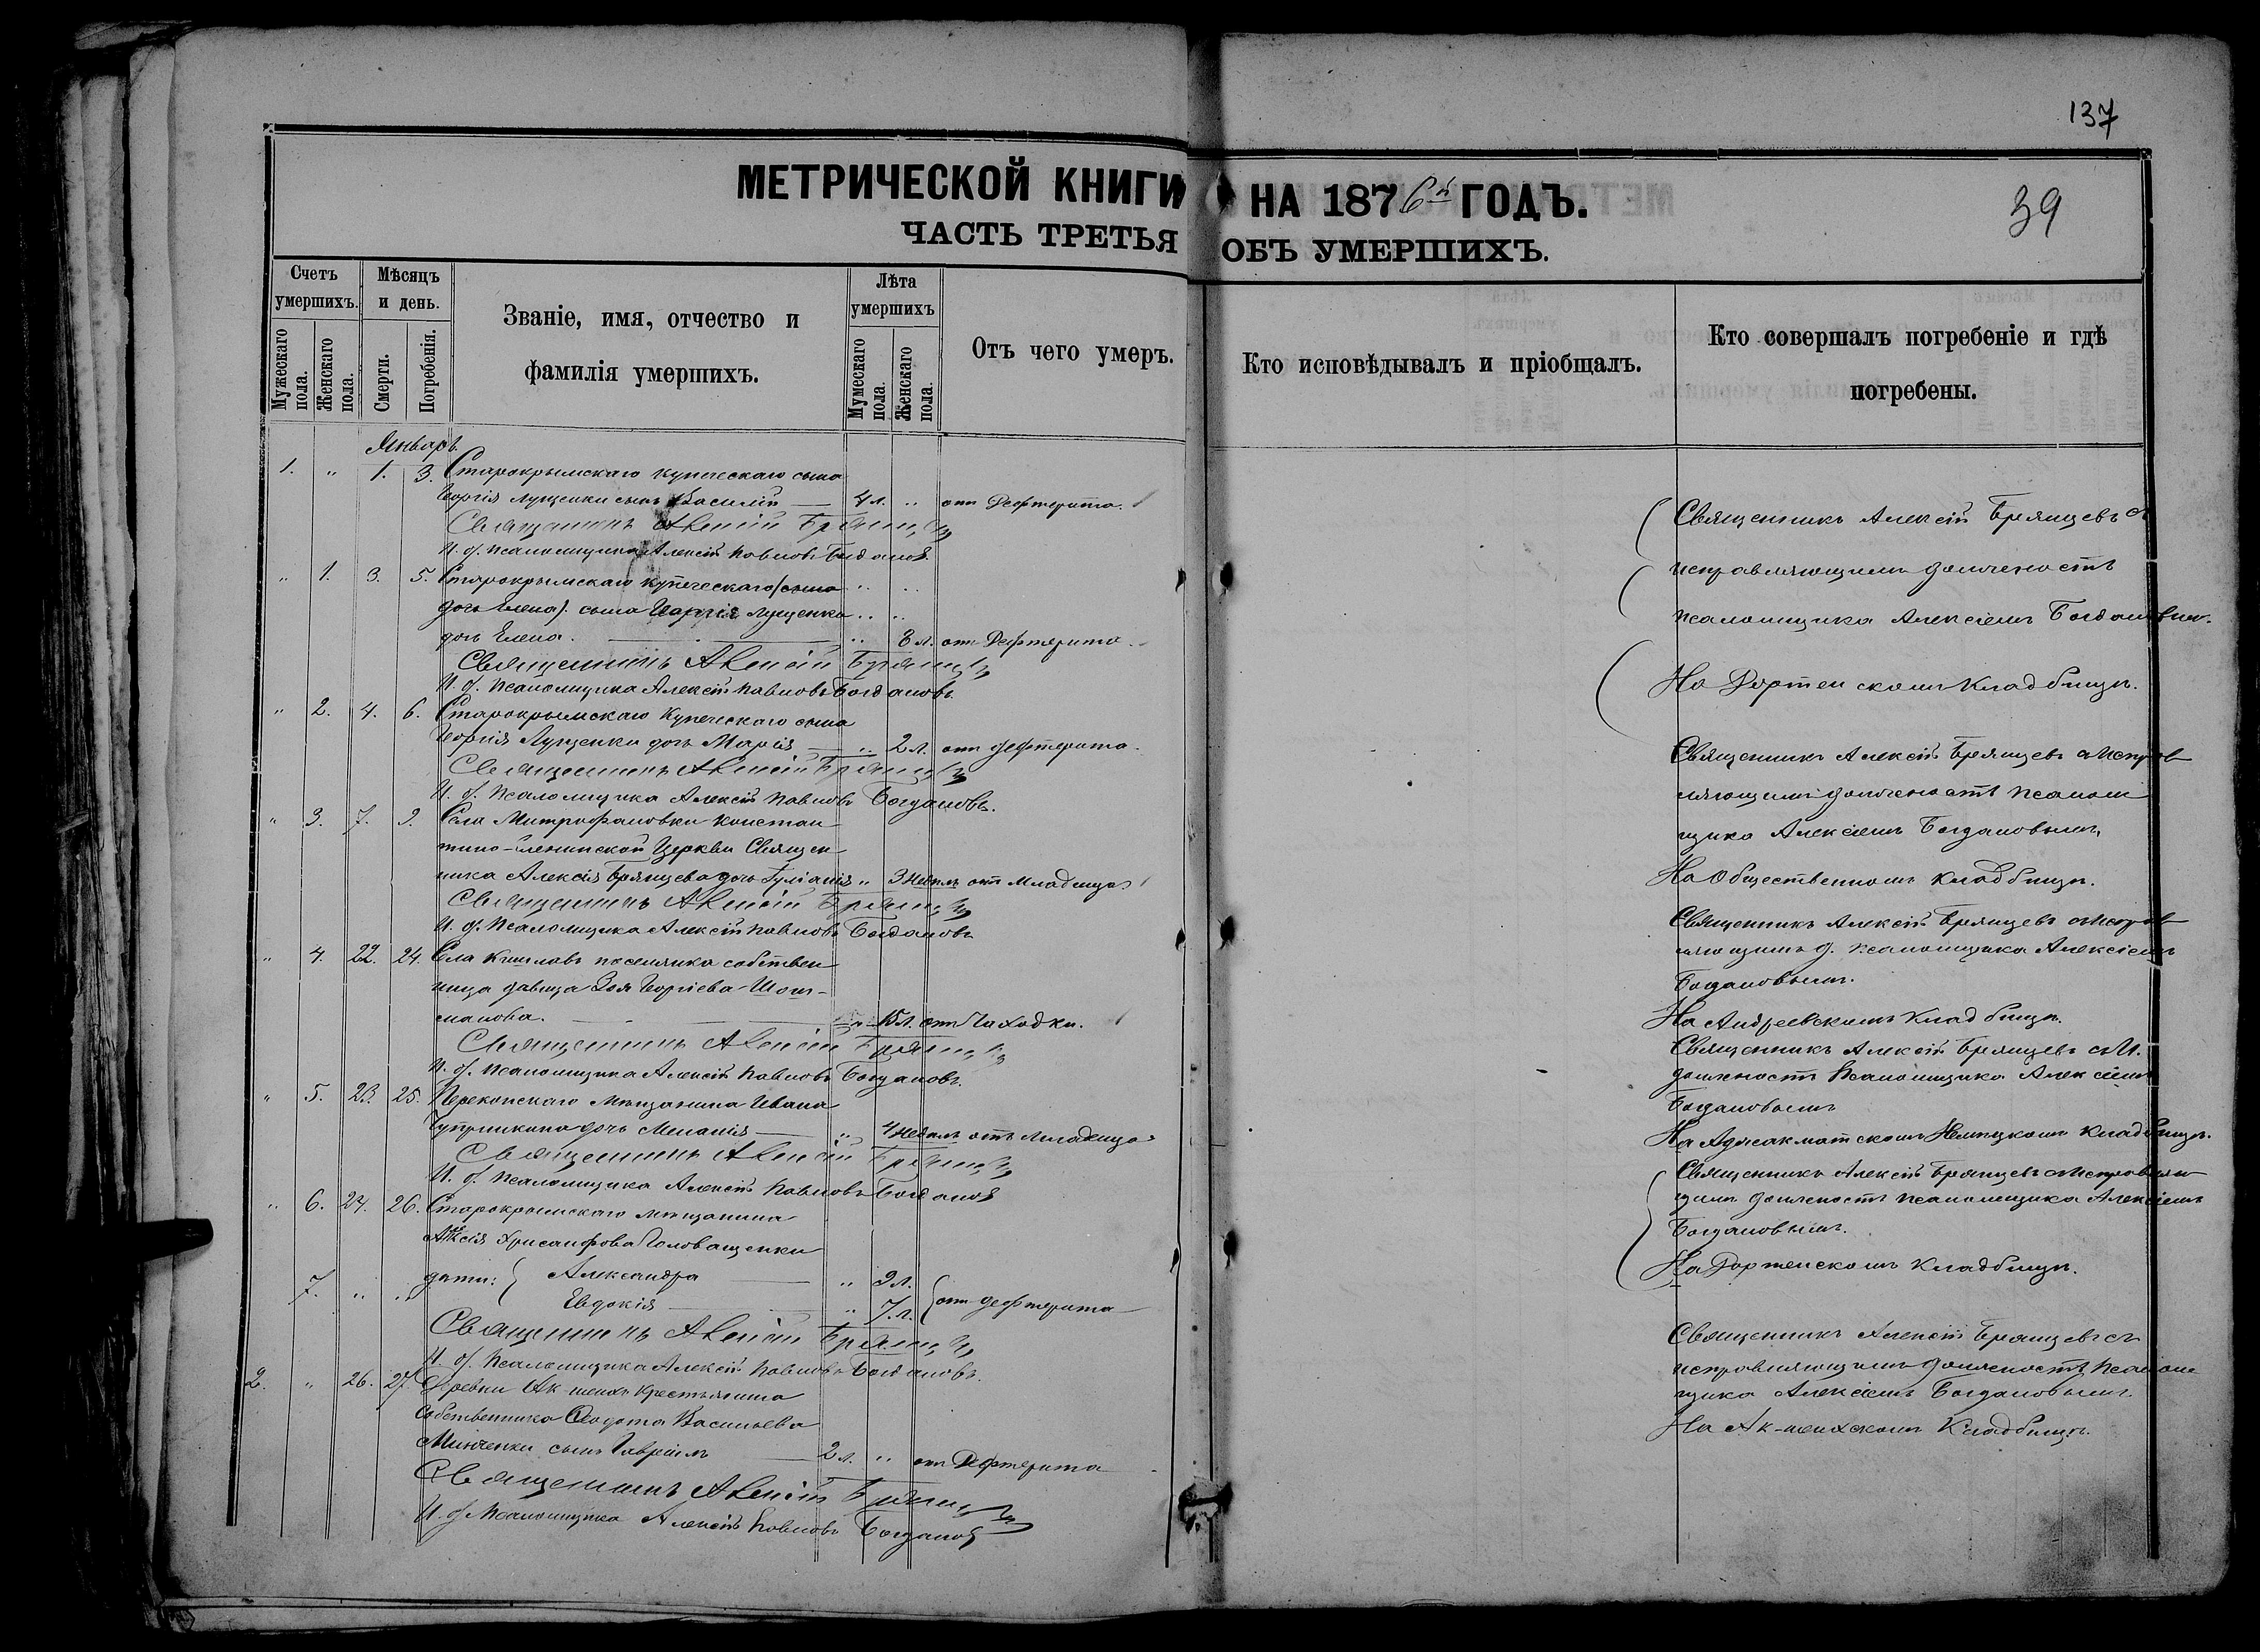 137
39
МЕТРИЧЕСКОЙ КНИГИ НА 1876й ГОДЪ.
ЧАСТЬ ТРЕТЬЯ ОБЪ УМЕРШИХЪ.
Счетъ умершихъ.
Мужескаго пола.
Женскаго пола.
Мѣсяцъ и день.
Смерти.
Погребенія.
Званіе, имя, отчество и
фамилія умершихъ.
Лѣта умершихъ
Мужескаго пола.
Женскаго пола.
Отъ чего умеръ.
Кто исповѣдывалъ и пріобщалъ.
Кто совершалъ погребеніе и гдѣ
погребены.
Январь.
1. " 1. 3. Старокрымскаго купеческаго сына
Георгія Луценки сынъ Василій — 4 л. " отъ Дефтерита.
Священникъ Алексій Брянцевъ
И. д. псаломщика Алексѣй Павловъ Богданов
" 1. 3. 5. Старокрымскаго купеческаго (сына
дочь Елена). сына Георгія Луценка
дочь Елена. — " 8 л. отъ Дефтерита
Священникъ Алексій Брянцевъ
И. д. псаломщика Алексѣй Павловъ Богдановъ
" 2. 4. 6. Старокрымскаго Купеческаго сына
Георгія Луценки дочь Марія — " 2 л. отъ дефтерита.
Священникъ Алексій Брянцевъ
И. д. псаломщика Алексѣй Павловъ Богдановъ.
" 3. 7. 9. Села Митрофановки Констан
тино-Еленинской Церкви Священ
ника Алексія Брянцева дочь Іуліанія " 3 недѣль отъ Младенца
Священникъ Алексій Брянцевъ
И. д. Псаломщика Алексѣй Павловъ Богдановъ
" 4. 22. 24. Села поселянка собствен
ница дѣвица Зоя Георгіева
манова. — " 15 л. отъ Чаходки.
Священникъ Алексій Брянцевъ
И. д. псаломщика Алексѣй Павловъ Богдановъ.
" 5. 23. 25. Перекопскаго Мѣщанина Ивана
дочь Меланія — " 4 недѣль отъ Младенца
Священникъ Алексій Брянцевъ
И. д. псаломщика Алексѣй Павловъ Богданов
" 6. 24. 26. Старокрымскаго мѣщанина
Алексія Хрисанфова Головащенки
дѣти: { Александра — " 9 л.
7. " " Евдокія — " 7 л. { отъ дефтерита
Священникъ Алексій Брянцевъ
И. д. псаломщика Алексѣй Павловъ Богдановъ.
2. " 26. 27. Деревни Ак-шеихъ крестьянина
Собственника Ѳеодота Васильева
Минченки сынъ Гавріилъ — 2 л. " отъ Дефтерита
Священникъ Алексій Брянцевъ
И. д. Псаломщика Алексѣй Павловъ Богданов
Священникъ Алексѣй Брянцевъ съ
исправляющимъ должность
псаломщика Алексіемъ Богдановым.
На скомъ Кладбищѣ.
Священникъ Алексѣй Брянцевъ съ исправ
ляющимъ должность псалом
щика Алексіемъ Богдановымъ,
На Общественномъ кладбищѣ.
Священникъ Алексѣй Брянцевъ съ исправ
ляющимъ д. псаломщика Алексіемъ
Богдановымъ.
На Андреевскомъ Кладбищѣ.
Священникъ Алексѣй Брянцевъ съ И.
должность Псаломщика Алексіемъ
Богдановымъ
На Аджакматскомъ Нѣмецкомъ кладбищѣ.
Священникъ Алексѣй Брянцевъ съ исправляю
щимъ должность псаломщика Алексіемъ
Богдановымъ.
На скомъ Кладбищѣ.
Священникъ Алексѣй Брянцевъ съ
исправляющимъ должность псалом
щика Алексіемъ Богдановымъ
На Ак-шеихскомъ Кладбищѣ.